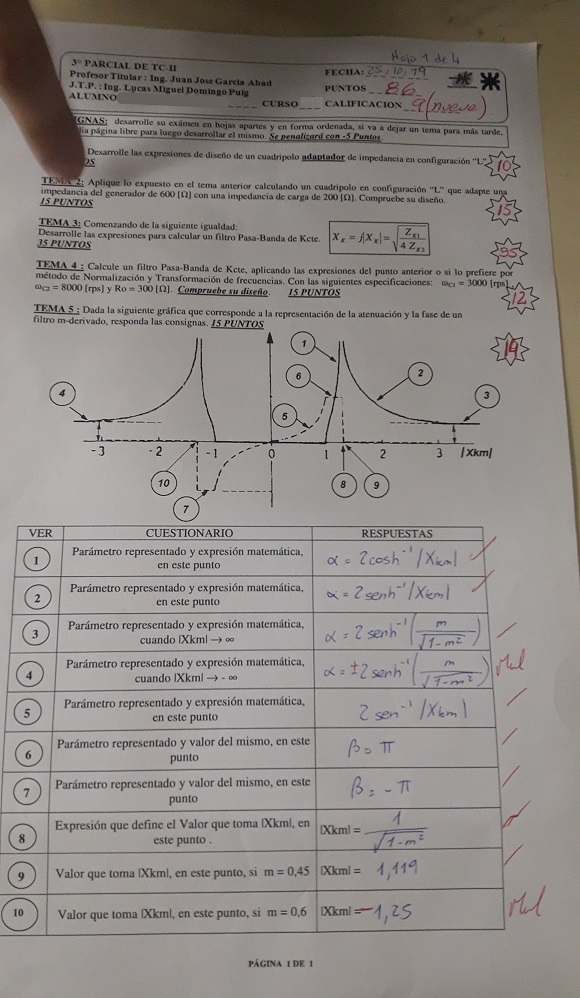 Hojo 1 de 4
3° PARCIAL DE TC-II
Profesor Titular : Ing. Juan Jose García Abad
J.T.P. : Ing. Lucas Miguel Domingo Puig
ALUMNO
CURSO
FECHA: 25/10/19
PUNTOS 86
CALIFICACION 9(nueve)
IGNAS: desarrolle su exámen en hojas apartes y en forma ordenada, si va a dejar un tema para más tarde,
página libre para luego desarrollar el mismo. Se penalizará con -5 Puntos
Desarrolle las expresiones de diseño de un cuadripolo adaptador de impedancia en configuración "L".
OS
10
TEMA 2: Aplique lo expuesto en el tema anterior calculando un cuadripolo en configuración "L" que adapte una
impedancia del generador de 600 [Ω] con una impedancia de carga de 200 [Ω]. Compruebe su diseño.
15 PUNTOS
15
TEMA 3: Comenzando de la siguiente igualdad:
Desarrolle las expresiones para calcular un filtro Pasa-Banda de Kcte.
35 PUNTOS
X_K = j|X_K| = √(Z_K1 / 4 Z_K2)
35
TEMA 4 : Calcule un filtro Pasa-Banda de Kcte, aplicando las expresiones del punto anterior o si lo prefiere por
método de Normalización y Transformación de frecuencias. Con las siguientes especificaciones: ω_C1 = 3000 [rps],
ω_C2 = 8000 [rps] y Ro = 300 [Ω]. Compruebe su diseño. 15 PUNTOS
12
TEMA 5 : Dada la siguiente gráfica que corresponde a la representación de la atenuación y la fase de un
filtro m-derivado, responda las consignas. 15 PUNTOS
14
1
2
6
4
3
5
-3 -2 -1 0 1 2 3 |Xkm|
10
8
9
7
VER CUESTIONARIO RESPUESTAS
1 Parámetro representado y expresión matemática, en este punto α = 2cosh⁻¹|Xkm|
2 Parámetro representado y expresión matemática, en este punto α = 2senh⁻¹|Xkm|
3 Parámetro representado y expresión matemática, cuando |Xkm| → ∞ α = 2senh⁻¹(m/√(1-m²))
4 Parámetro representado y expresión matemática, cuando |Xkm| → - ∞ α = ±2senh⁻¹(m/√(1-m²)) Mal
5 Parámetro representado y expresión matemática, en este punto 2sen⁻¹|Xkm|
6 Parámetro representado y valor del mismo, en este punto β = π
7 Parámetro representado y valor del mismo, en este punto β = -π
8 Expresión que define el Valor que toma |Xkm|, en este punto . |Xkm| = 1/√(1-m²)
9 Valor que toma |Xkm|, en este punto, si m = 0,45 |Xkm| = 1,119
10 Valor que toma |Xkm|, en este punto, si m = 0,6 |Xkm| = -1,25 Mal
PÁGINA 1 DE 1